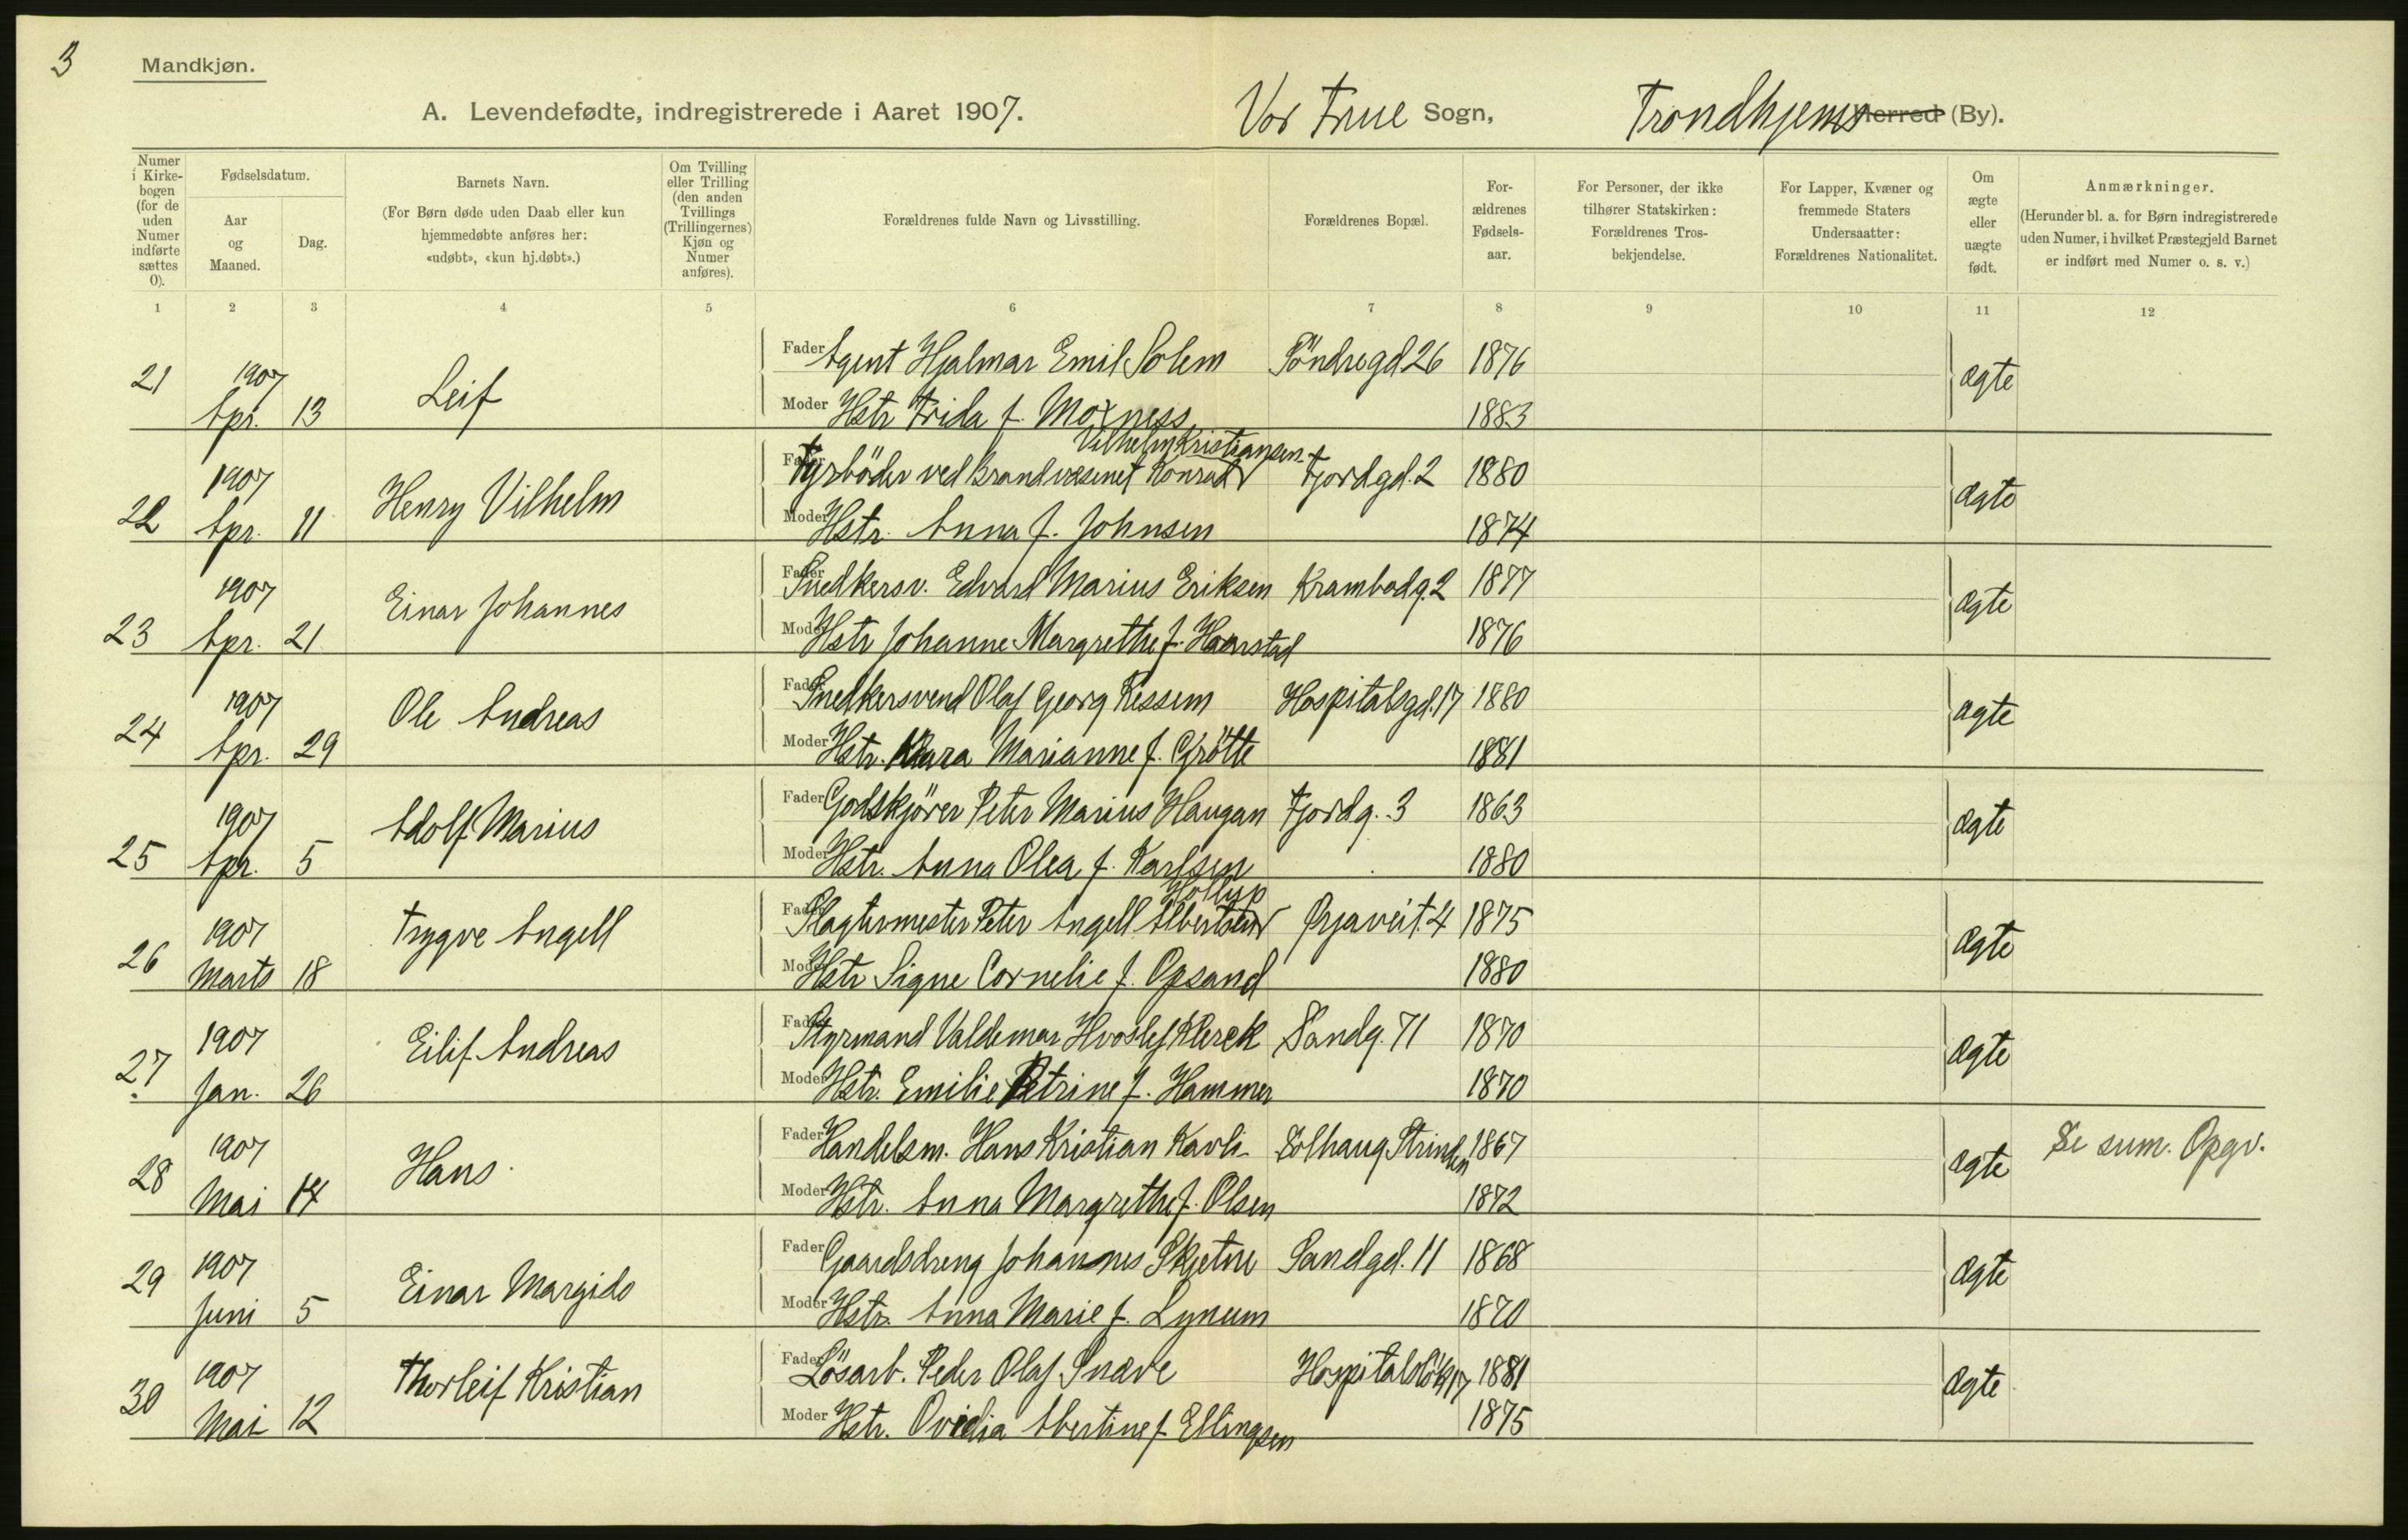 3
Mandkjøn.
A. Levendefødte, indregistrerede i Aaret 1907.
Vor Frue Sogn,
Trondhjems Herred (By).
Numer i Kirkebogen (for de uden Numer indførte sættes 0).
Fødselsdatum.
Aar og Maaned.
Dag.
Barnets Navn.
(For Børn døde uden Daab eller kun hjemmedøbte anføres her: «udøbt», «kun hj.døbt».)
Om Tvilling eller Trilling (den anden Tvillings (Trillingernes) Kjøn og Numer anføres).
Forældrenes fulde Navn og Livsstilling.
Forældrenes Bopæl.
Forældrenes Fødselsaar.
For Personer, der ikke tilhører Statskirken: Forældrenes Trosbekjendelse.
For Lapper, Kvæner og fremmede Staters Undersaatter: Forældrenes Nationalitet.
Om ægte eller uægte født.
Anmærkninger.
(Herunder bl. a. for Børn indregistrerede uden Numer, i hvilket Præstegjeld Barnet er indført med Numer o. s. v.)
1 2 3 4 5 6 7 8 9 10 11 12
21 1907 Apr. 13 Leif
Fader Agent Hjalmar Emil Solem Söndregd 26 1876 ægte
Moder Hstr Frida f. Moxness 1883
22 1907 Apr. 11 Henry Vilhelm
Vilhelm Kristiansen
Fader Fyrböder ved Brandvæsenet Konrad Fjordgd. 2 1880 ægte
Moder Hstr. Anna f. Johnsen 1874
23 1907 Apr. 21 Einar Johannes
Fader Snedkersv. Edvard Marius Eriksen Krambodg. 2 1877 ægte
Moder Hstr Johanne Margrethe f. Haarstad 1876
24 1907 Apr. 29 Ole Andreas
Fader Snedkersvend Olaf Georg Ressem Hospitalsgd. 17 1880 ægte
Moder Hstr. Klara Marianne f. Grötte 1881
25 1907 Apr. 5 Adolf Marius
Fader Godskjörer Peter Marius Haugan Fjordg. 3 1863 ægte
Moder Hstr. Anna Olea f. Karlsen 1880
26 1907 Marts 18 Trygve Angell
Fader Slagtermester Peter Angell Albertsen Ørjaveit. 4 1875 ægte
Moder Hstr Signe Cornelie f. Opsand 1880
27 1907 Jan. 26 Eilif Andreas
Fader Styrmand Valdemar Hvoslef Klerck Sandg. 71 1870 ægte
Moder Hstr. Emilie Petrine f. Hammer 1870
28 1907 Mai 14 Hans
Fader Handelsm. Hans Kristian Kavli Solhaug Strinden 1867 ægte Se sum. Opgv.
Moder Hstr. Anna Margrethe f. Olsen 1872
29 1907 Juni 5 Einar Margido
Fader Gaardsdreng Johannes Skjetne Sandgd. 11 1868 ægte
Moder Hstr. Anna Marie f. Lynum 1870
30 1907 Mai 12 Thorleif Kristian
Fader Lösarb. Peder Olaf Snæve 17 1881 ægte
Moder Hstr. Ovidia Abertine f. Ellingsen 1875